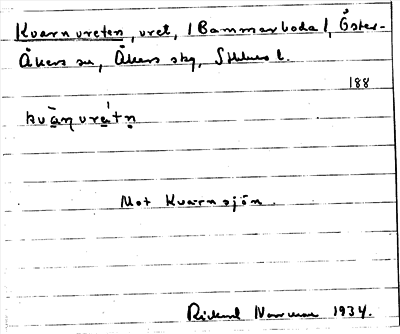 Kvarnvreten, vret, (Bammarboda), Öster-
Åkers sn, Åkers skg, Sthlms l.
188
kvànvrétn
Mot Kvarnsjön.
Rickard 1934.